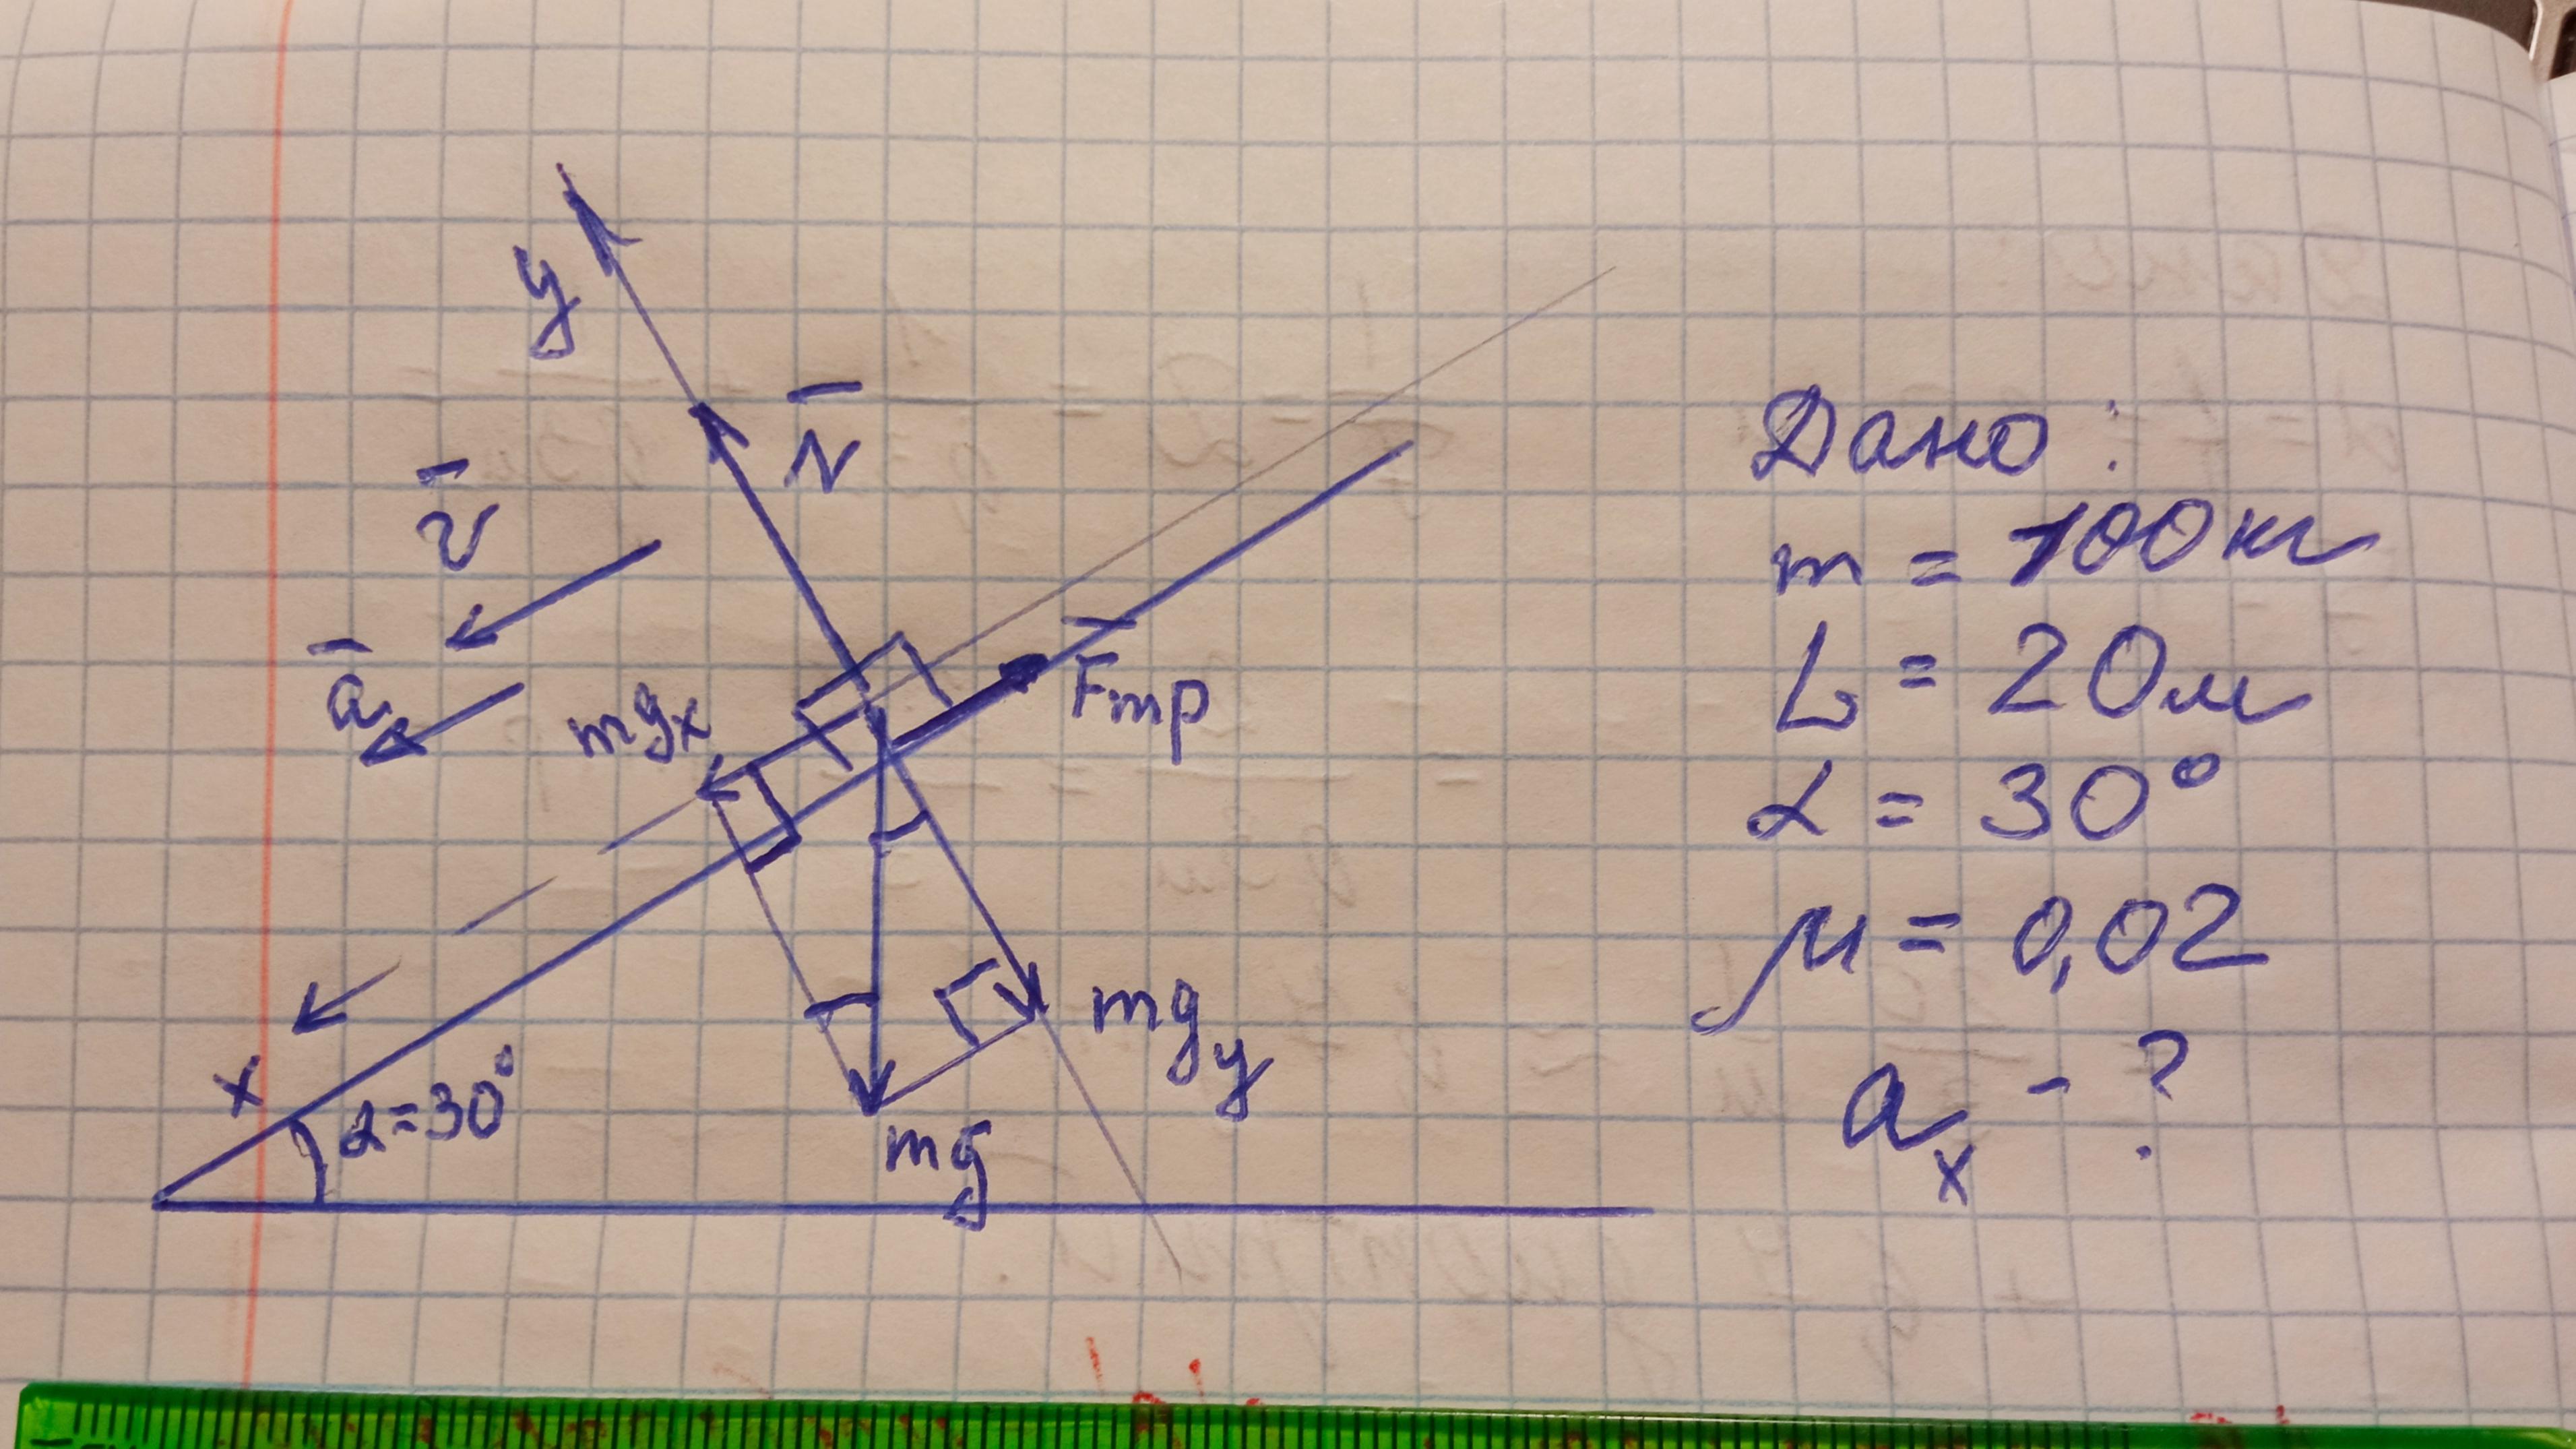 y
N̅
v̅
a̅
mgₓ
F̅тр
mg_y
mg̅
x
α=30°
Дано:
m = 100 кг
L = 20 м
α = 30°
μ = 0,02
aₓ - ?